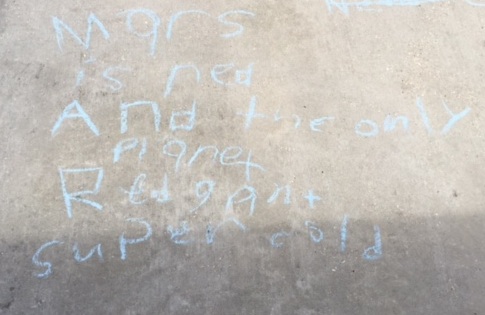 Mars
is red
And the only
planet
Red gant
super cold